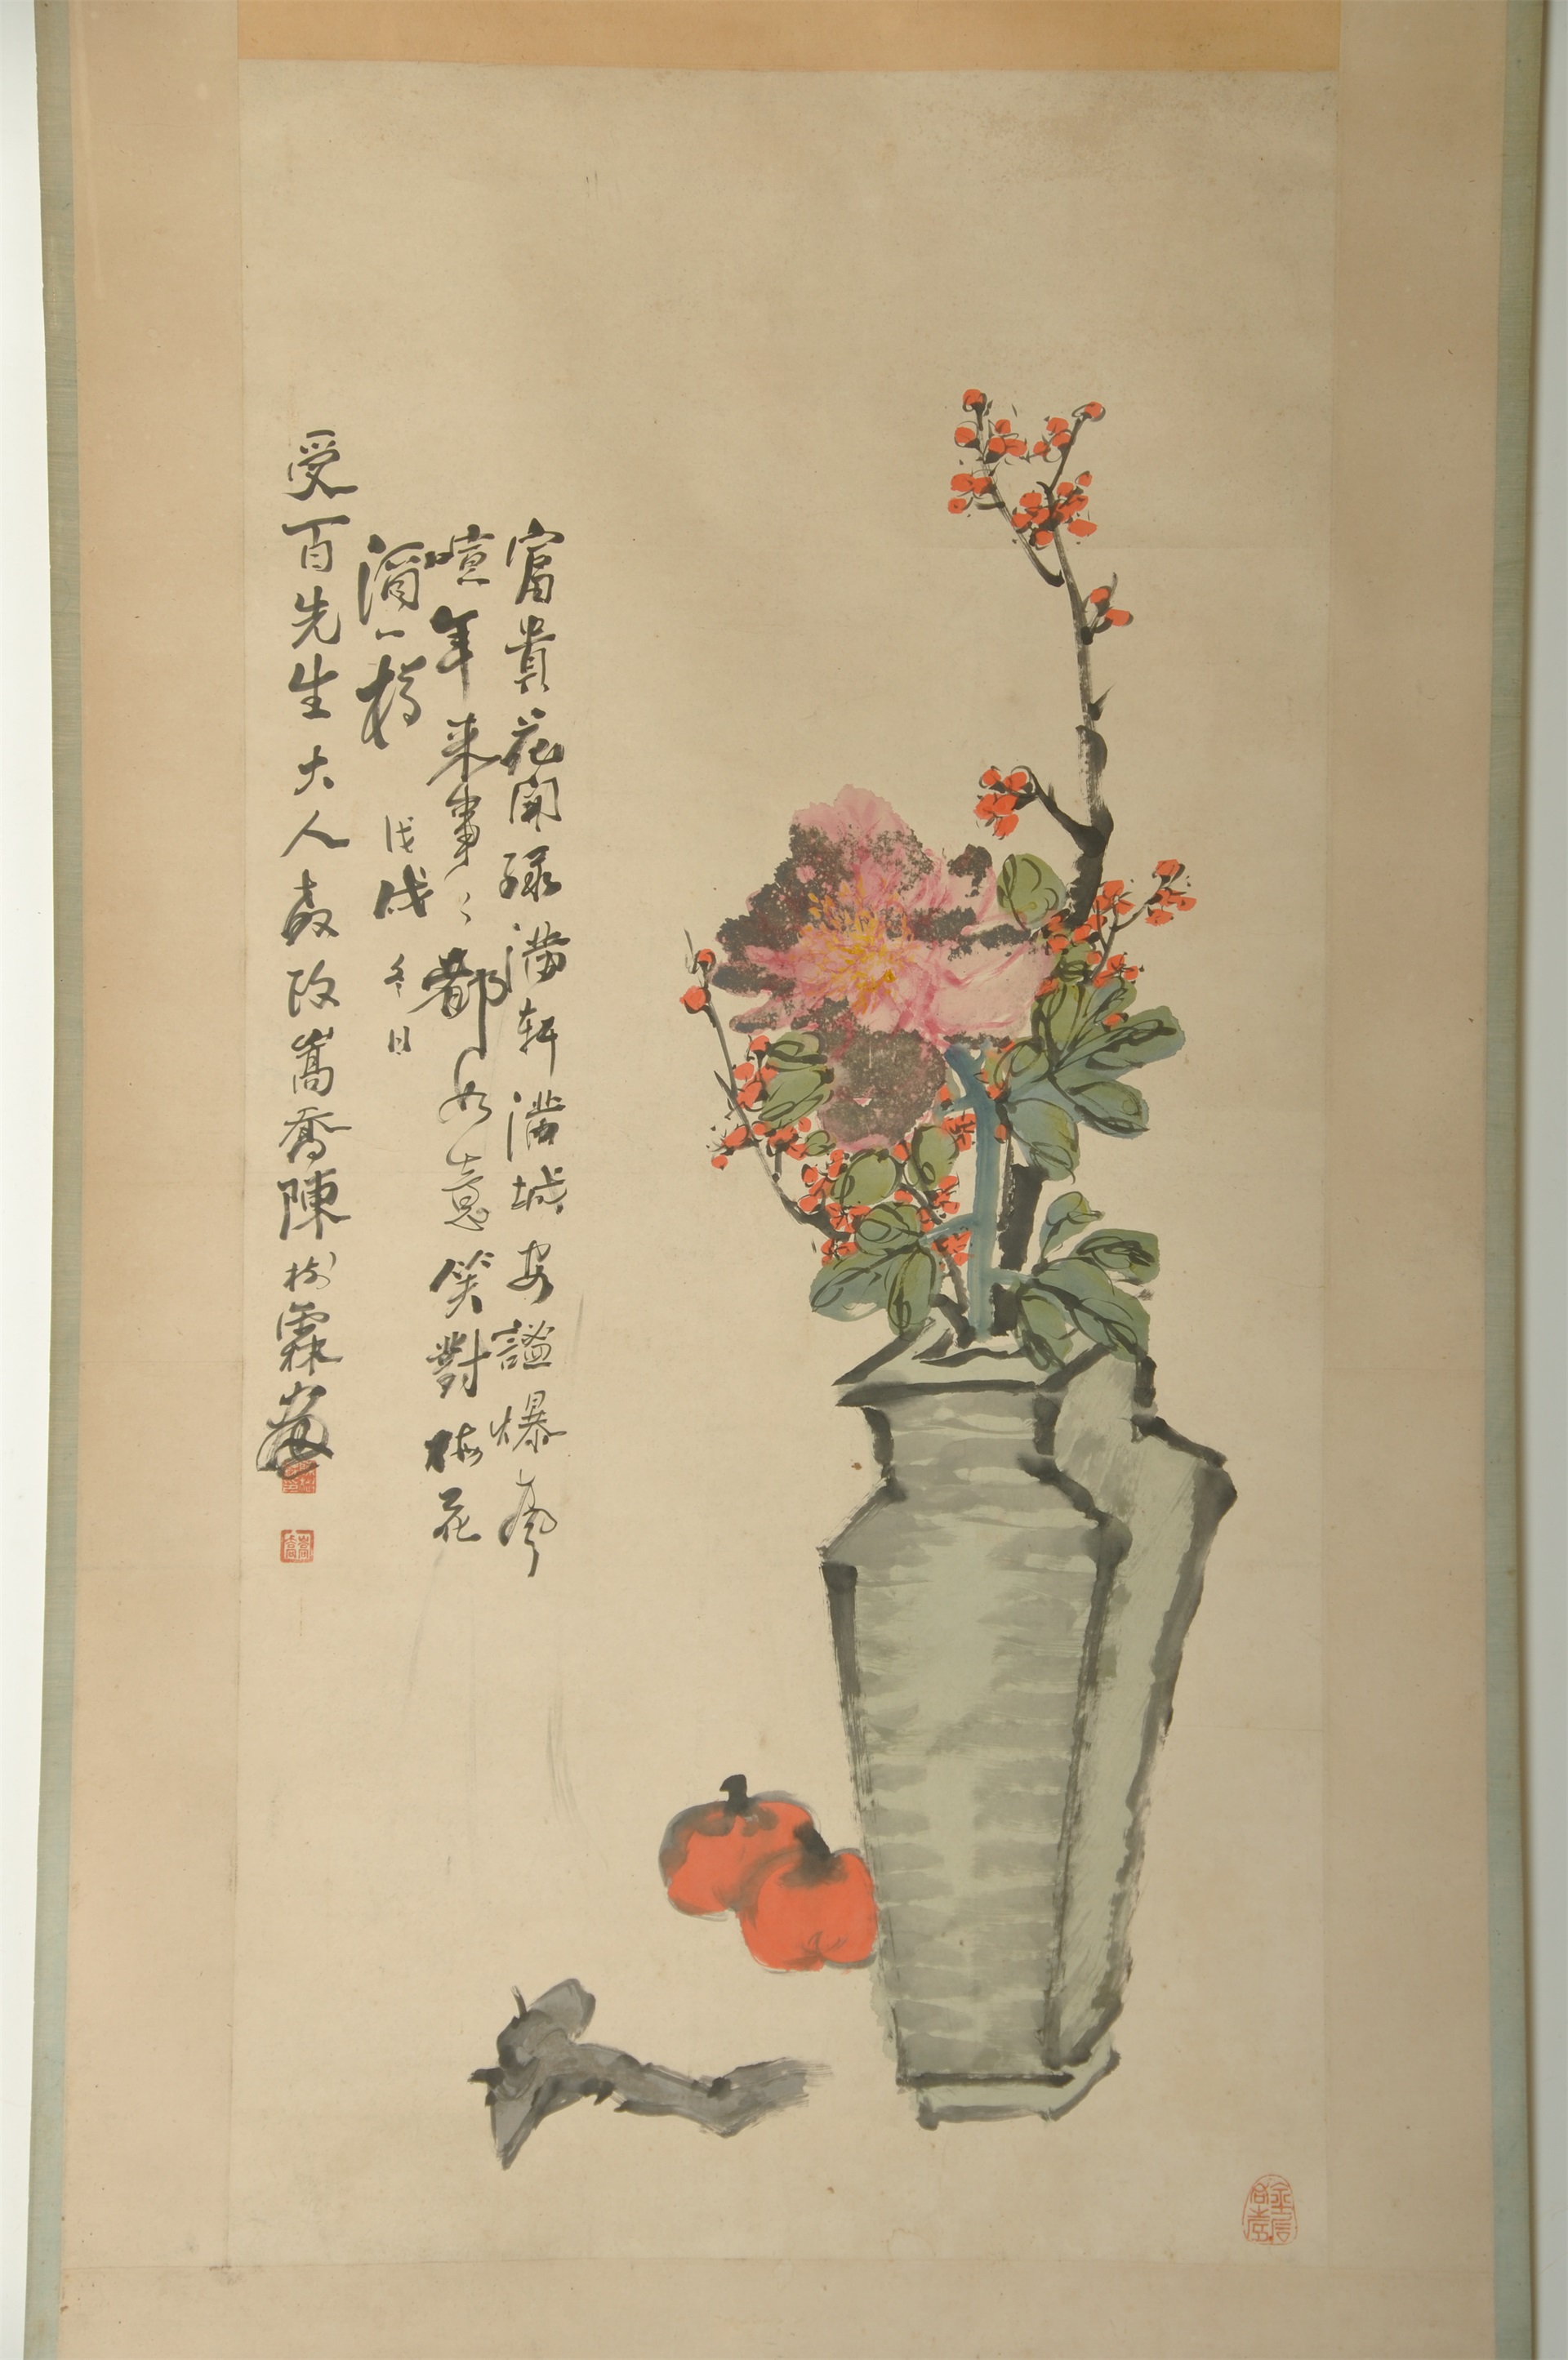 富貴花開綠滿軒滿城安謐爆聲
喧年來事々都如意笑對梅花
酒一樽
戊戌冬日
受百先生大人教政嵩喬陳樹霖畫